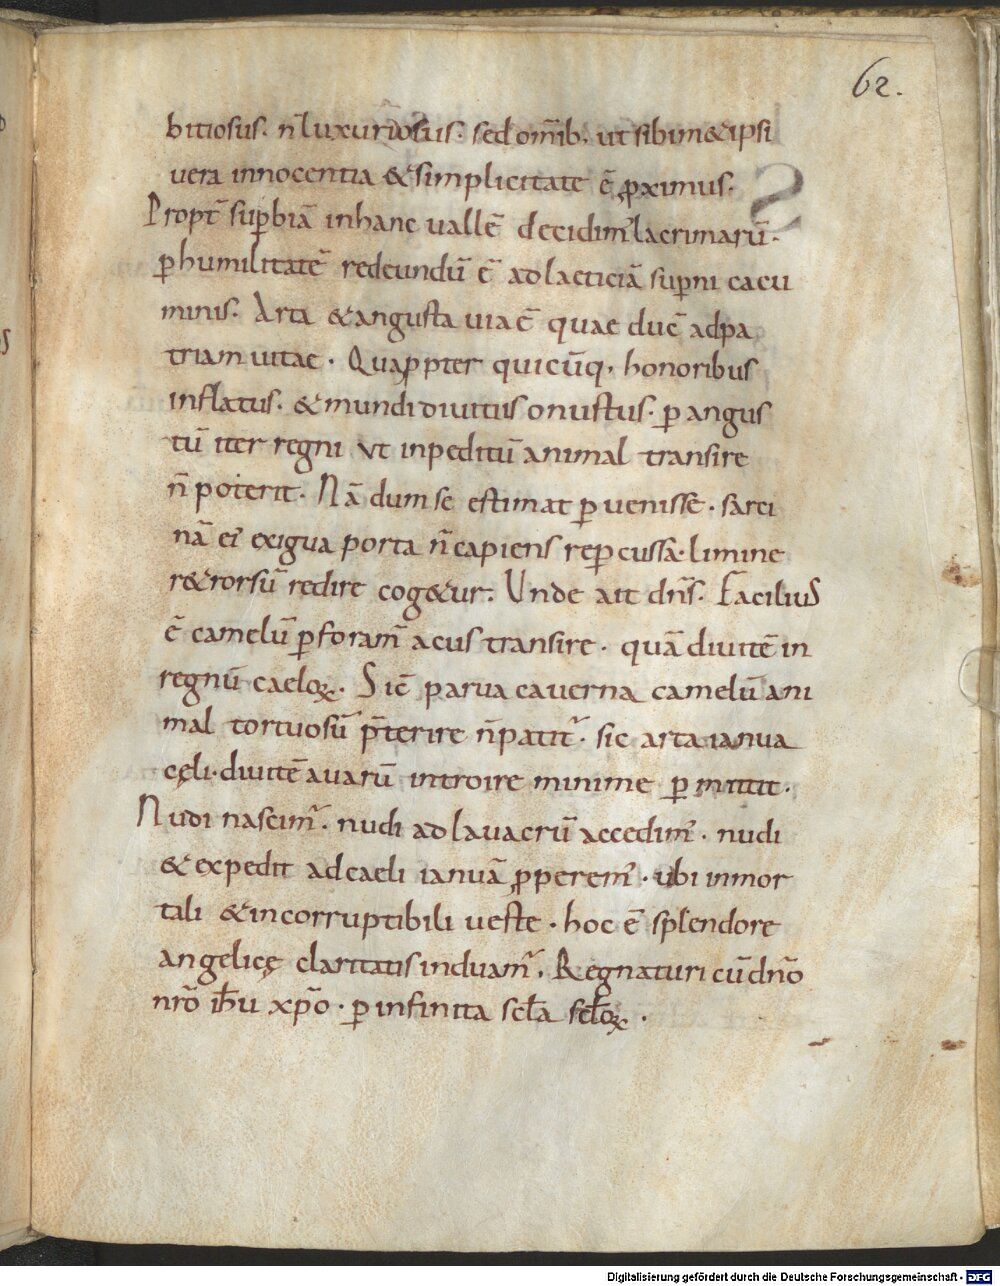 62.
bitiosus. n̄ luxuriosus. sed om̄ib; ut sibim&ipsi
uera innocentia & simplicitate ē ꝓximus.
Propt̄ suꝑbiā inhanc uallē decidim᾽ lacrimarū.
ꝑhumilitatē redeundū ē ad laeticiā suꝑni cacu
minis. Arta & angusta uia ē quae duc̄ adpa
triam uitae. Quaꝓpter quicūq; honoribus
inflatus. & mundi diuitiis onustus. ꝑ angus
tū iter regni ut inpeditū animal transire
n̄ poterit. Nā dum se estimat ꝑuenisse. sarci
nā ei exigua porta n̄ capiens reꝑcussa. limine
r&rorsū redire cog&ur. Unde ait dn̄s. Facilius
ē camelū ꝑforam̄ acus transire. quā diuitē in
regnū caeloꝝ. Sic̄ parua cauerna camelū ani
mal tortuosū p̄terire n̄patit᾽. sic arta ianua
cęli. diuitē auarū introire minime ꝑmittit.
Nudi nascim᾽. nudi ad lauacrū accedim᾽. nudi
& expedit ad caeli ianuā ꝓperem᾽. ubi inmor
tali & incorruptibili ueste. hoc ē splendore
angelicę claritatis induam᾽. Regnaturi cū dn̄o
nr̄o ih̄u xp̄o. ꝑ infinita scl̄a scl̄oꝝ.
Digitalisierung gefördert durch die Deutsche Forschungsgemeinschaft - DFG